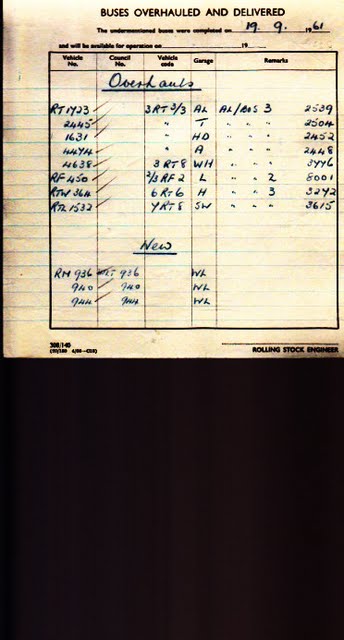 BUSES OVERHAULED AND DELIVERED
The undermentioned buses were completed on 19. 9. 1961
and will be available for operation on 19
Vehicle No. Council No. Vehicle code Garage Remarks
Overhauls
RT 1723 3RT 3/3 AL AL/BUS 3 2539
2445 " T " " " 2504
1631 " HD " " " 2452
4474 " A " " " 2448
4638 3 RT8 WH " " " 3446
RF 450 2/3 RF 2 L " " 2 8001
RTW 364 6 RT6 H " " 3 3242
RTL 1532 7RT8 SW " " " 3615
New
RM 936 WLT 936 WL
940 940 WL
944 944 WL
308/140
ROLLING STOCK ENGINEER